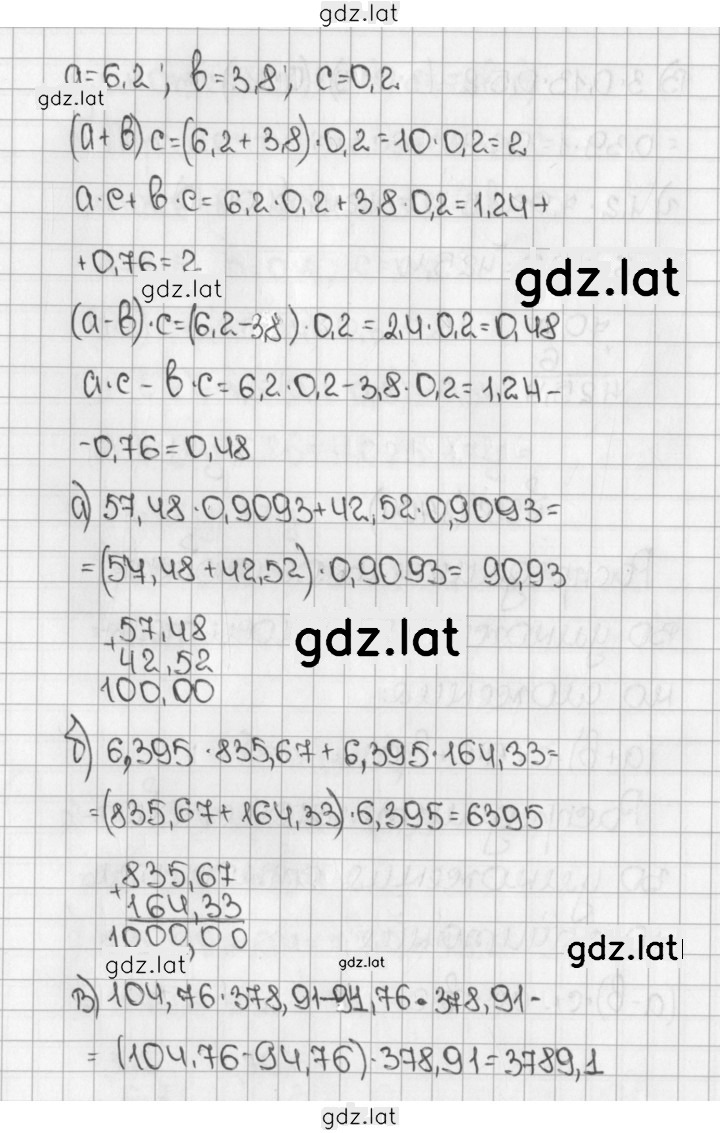 gdz.lat
a=6,2; в=3,8; с=0,2
gdz.lat
(а+в)с=(6,2+3,8)·0,2=10·0,2=2
а·с+в·с=6,2·0,2+3,8·0,2=1,24+
+0,76=2
gdz.lat
gdz.lat
(а-в)·с=(6,2-3,8)·0,2=2,4·0,2=0,48
а·с-в·с=6,2·0,2-3,8·0,2=1,24-
-0,76=0,48
а) 57,48·0,9093+42,52·0,9093=
=(57,48+42,52)·0,9093= 90,93
+57,48
42,52
100,00
gdz.lat
б) 6,395·835,67+6,395·164,33=
=(835,67+164,33)·6,395=6395
+835,67
164,33
1000,00
gdz.lat
gdz.lat
gdz.lat
в) 104,76·378,91-94,76·378,91-
=(104,76-94,76)·378,91=3789,1
gdz.lat